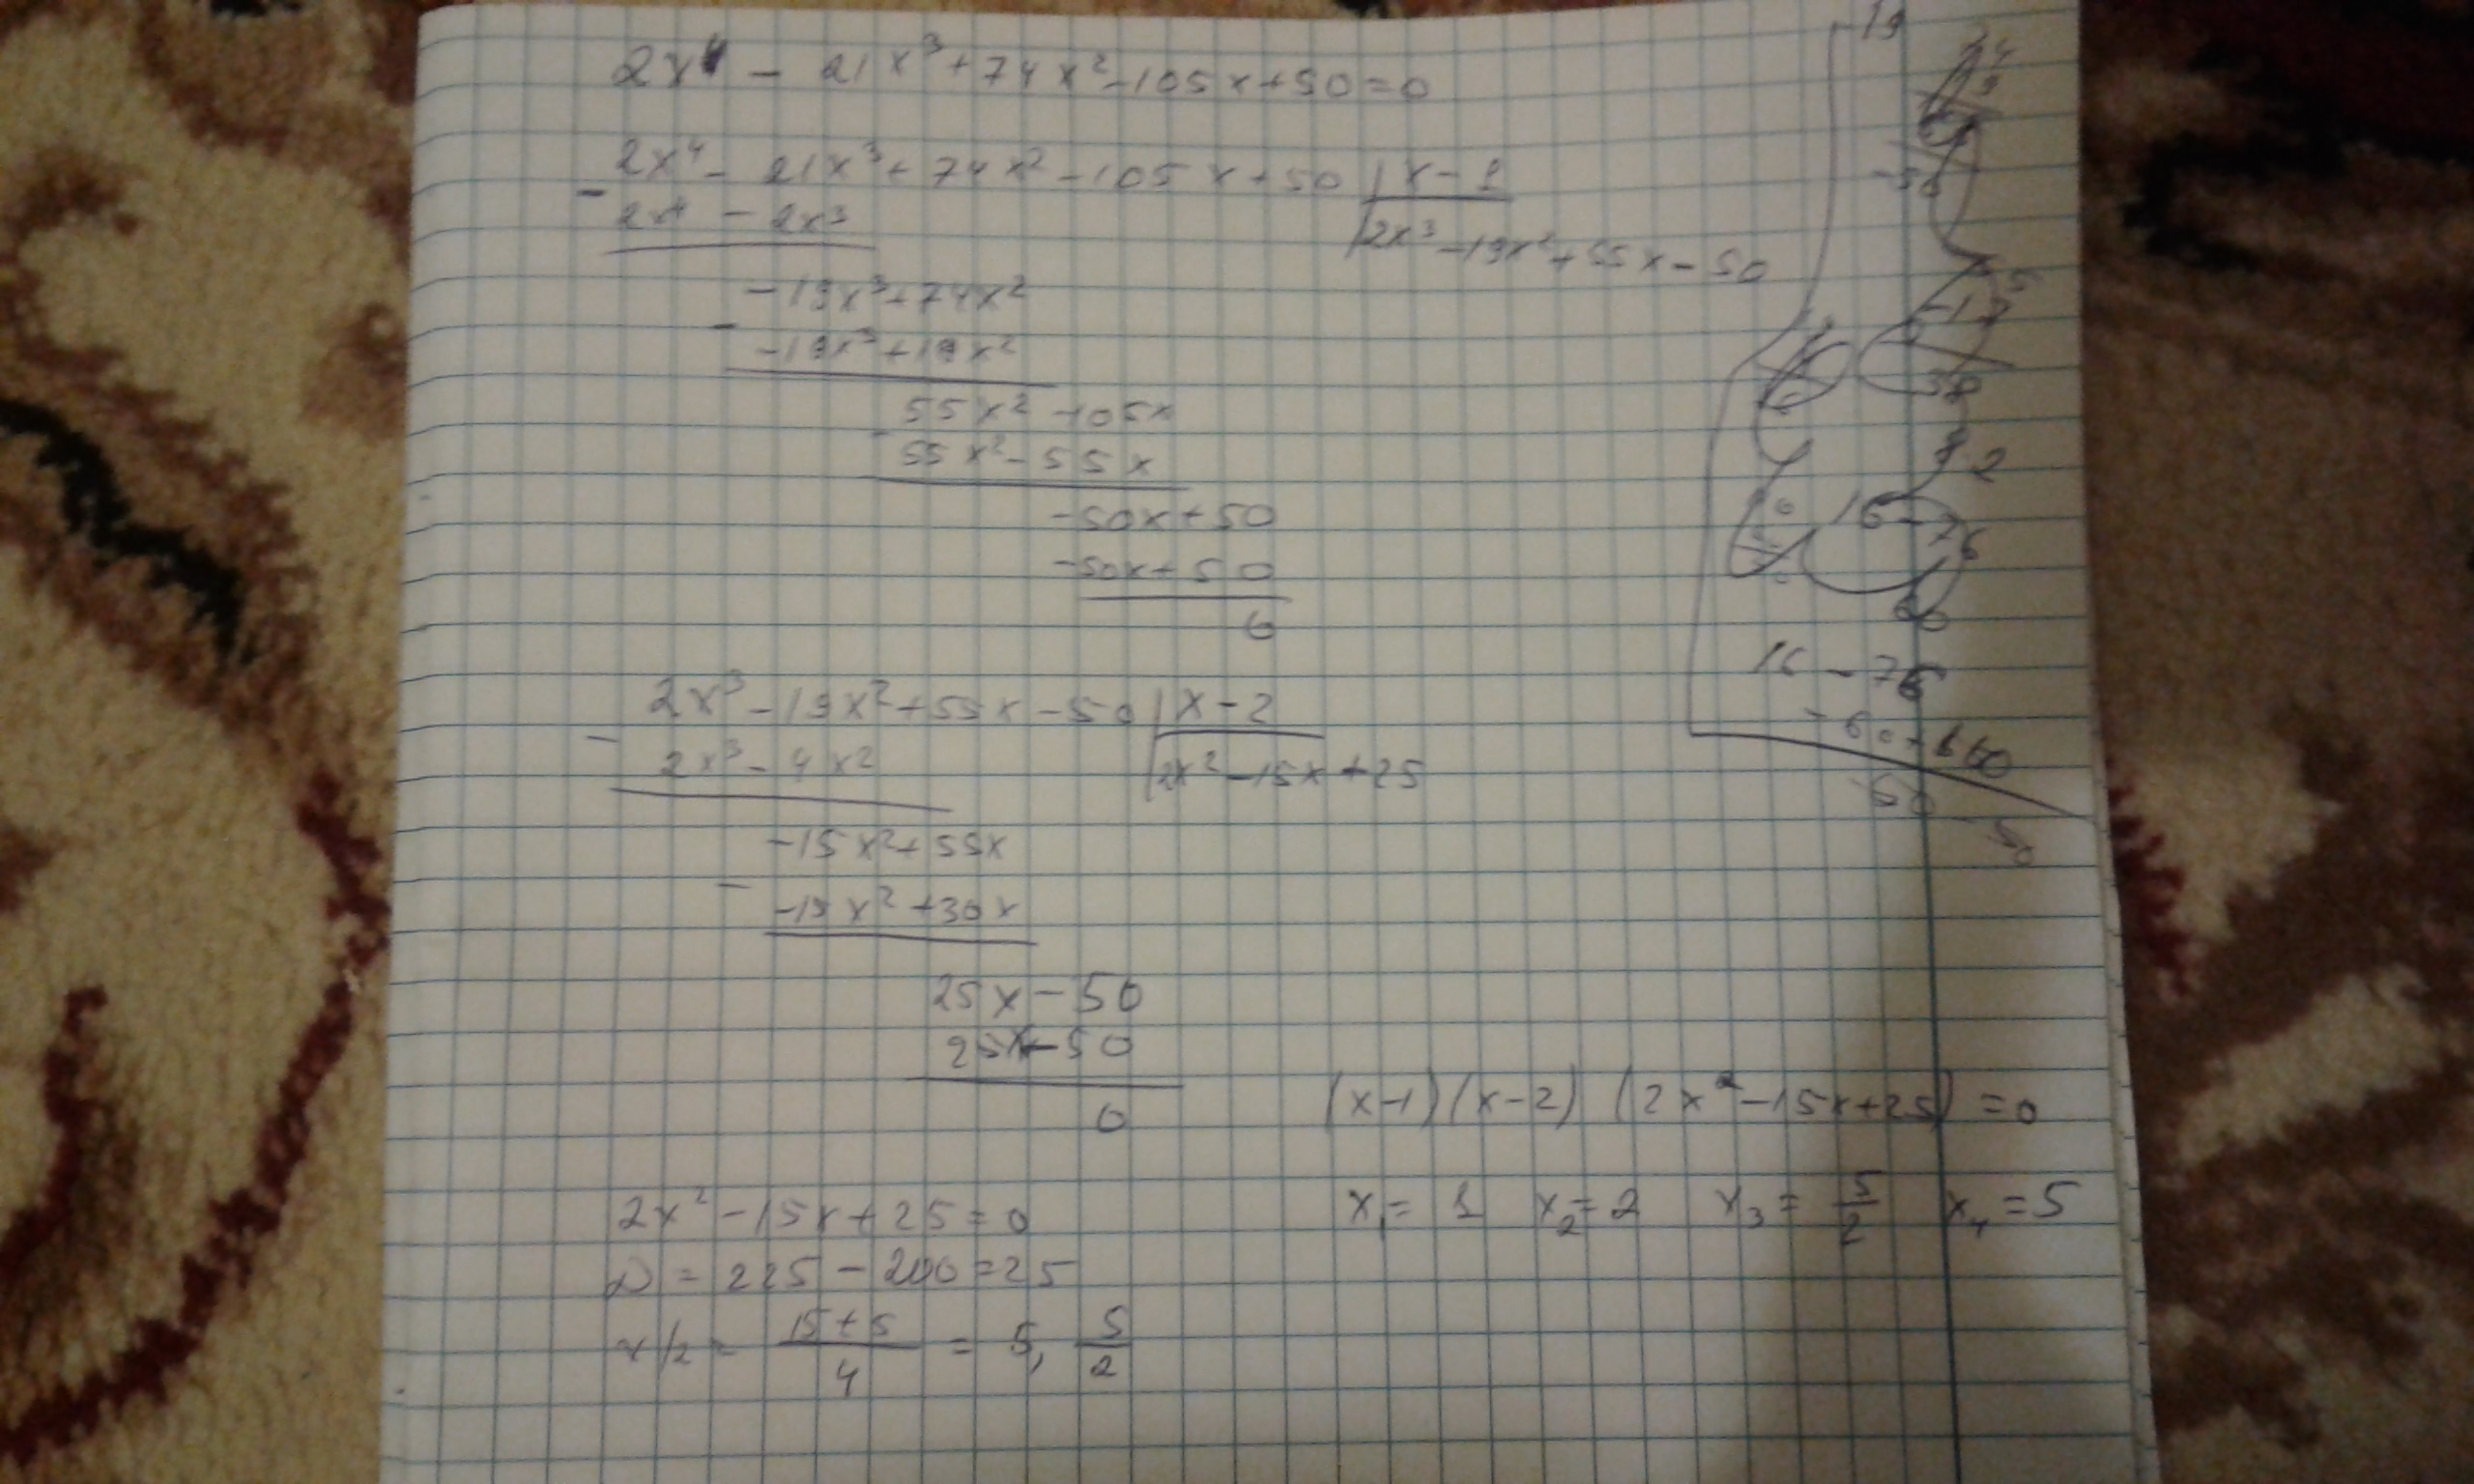 2x⁴ - 21x³ + 74x² - 105x + 50 = 0
2x⁴ - 21x³ + 74x² - 105x + 50 | x - 1
- 2x⁴ - 2x³
2x³ - 19x² + 55x - 50
-19x³ + 74x²
- -19x³ + 19x²
55x² - 105x
- 55x² - 55x
-50x + 50
-50x + 50
0
2x³ - 19x² + 55x - 50 | x - 2
- 2x³ - 4x²
2x² - 15x + 25
-15x² + 55x
- -15x² + 30x
25x - 50
25x - 50
0
2x² - 15x + 25 = 0
D = 225 - 200 = 25
x1/2 = (15 ± 5)/4 = 5, 5/2
(x-1)(x-2)(2x² - 15x + 25) = 0
x₁ = 1 x₂ = 2 x₃ = 5/2 x₄ = 5
-19
16 - 76